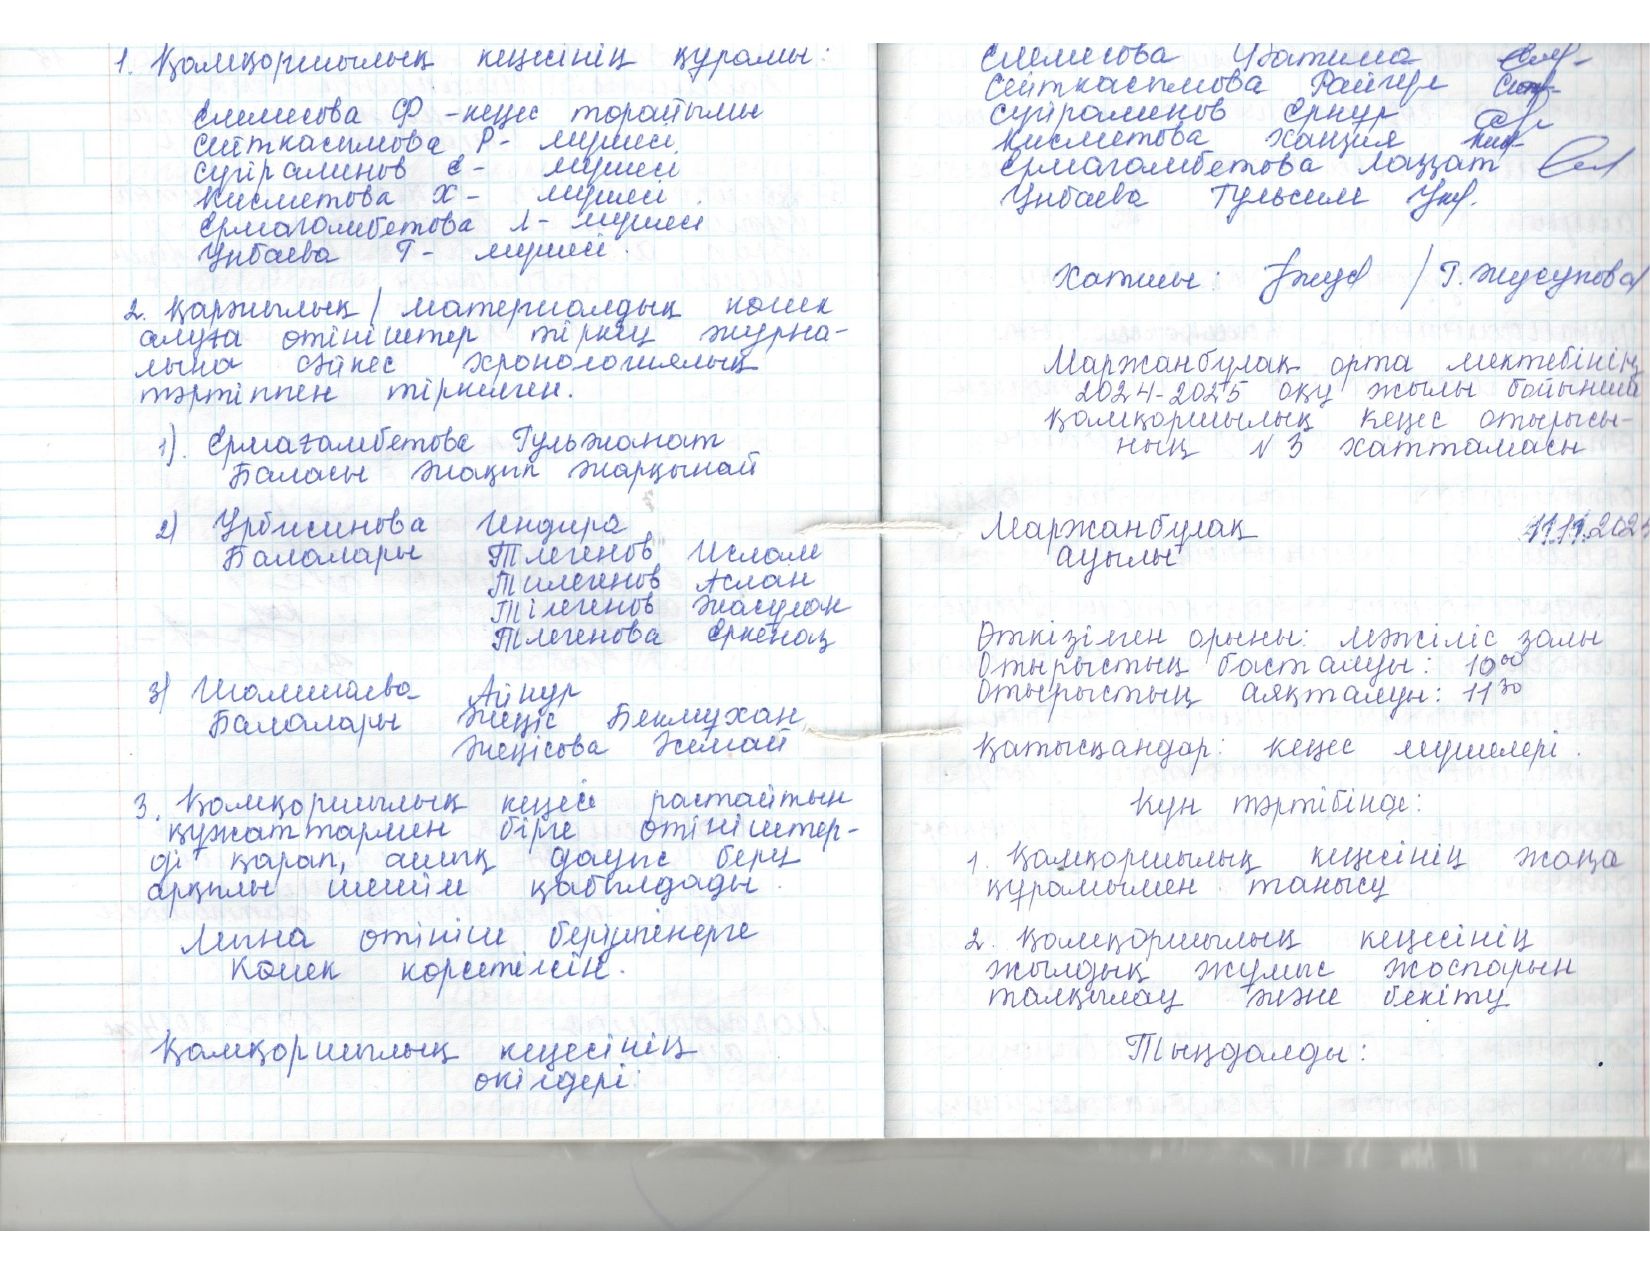 1. Қамқоршылық кеңесінің құрамы:
Елемесова Ф - кеңес төрайымы
Сейткасымова Р - мүшесі
Сүйраминов Е - мүшесі
Кисметова Х - мүшесі
Ермагамбетова Л - мүшесі
Унбаева Г - мүшесі.
2. Қаржылық / материалдық көмек
алуға өтініштер тіркеу журна-
лына сәйкес хронологиялық
тәртіппен тіркелген.
1). Ермагамбетова Гульжанат
Баласы Жақып Жарқынай
2) Урбисинова Индира
Балалары Тлегенов Ислам
Тилегенов Аслан
Тілегенов Жасулан
Тлегенова Еркеназ
3) Шамшаева Айнур
Балалары Жеңіс Бекмухан
Жеңісова Хемай
3. Қамқоршылық кеңесі растайтын
құжаттармен бірге өтініштер-
ді қарап, ашық дауыс беру
арқылы шешім қабылдады.
Мына өтініш берушілерге
Көмек көрсетілсін.
Қамқоршылық кеңесінің
өкілдері:
Елемесова Фатима
Сейткасымова Райгул
Сүйраминов Ернур
Кисметова Хания
Ермагамбетова Лаззат
Унбаева Гульсим
Хатшы: / Г. Жусупова /
Маржанбұлақ орта мектебінің
2024-2025 оқу жылы бойынша
қамқоршылық кеңес отырысы-
ның №3 хаттамасы
Маржанбұлақ 11.11.202
ауылы
Өткізілген орыны: мәжіліс залы
Отырыстың басталуы: 10⁰⁰
Отырыстың аяқталуы: 11³⁰
Қатысқандар: кеңес мүшелері.
Күн тәртібінде:
1. Қамқоршылық кеңесінің жаңа
құрамымен танысу
2. Қамқоршылық кеңесінің
жылдық жұмыс жоспарын
талқылау және бекіту
Тыңдалды: